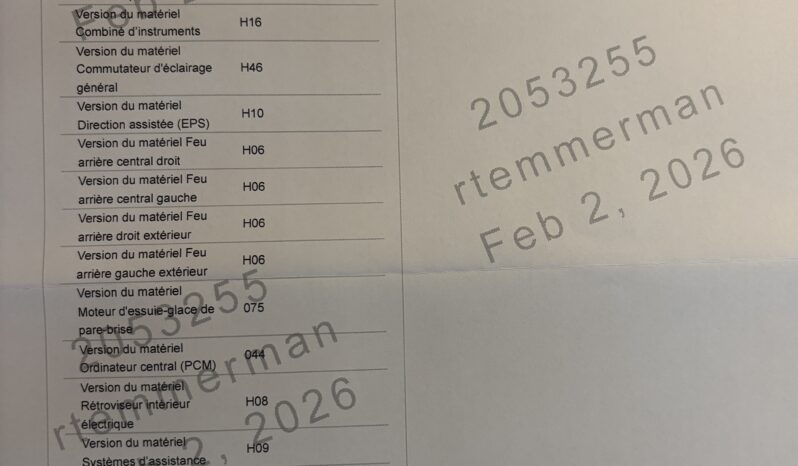 Version du matériel
Combiné d'instruments H16
Version du matériel
Commutateur d'éclairage H46
général
Version du matériel
Direction assistée (EPS) H10
Version du matériel Feu
arrière central droit H06
Version du matériel Feu
arrière central gauche H06
Version du matériel Feu
arrière droit extérieur H06
Version du matériel Feu
arrière gauche extérieur H06
Version du matériel
Moteur d'essuie-glace de 075
pare-brise
Version du matériel
Ordinateur central (PCM) 044
Version du matériel
Rétroviseur intérieur H08
électrique
Version du matériel
Systèmes d'assistance H09
2053255
rtemmerman
Feb 2, 2026
2053255
rtemmerman
2, 2026